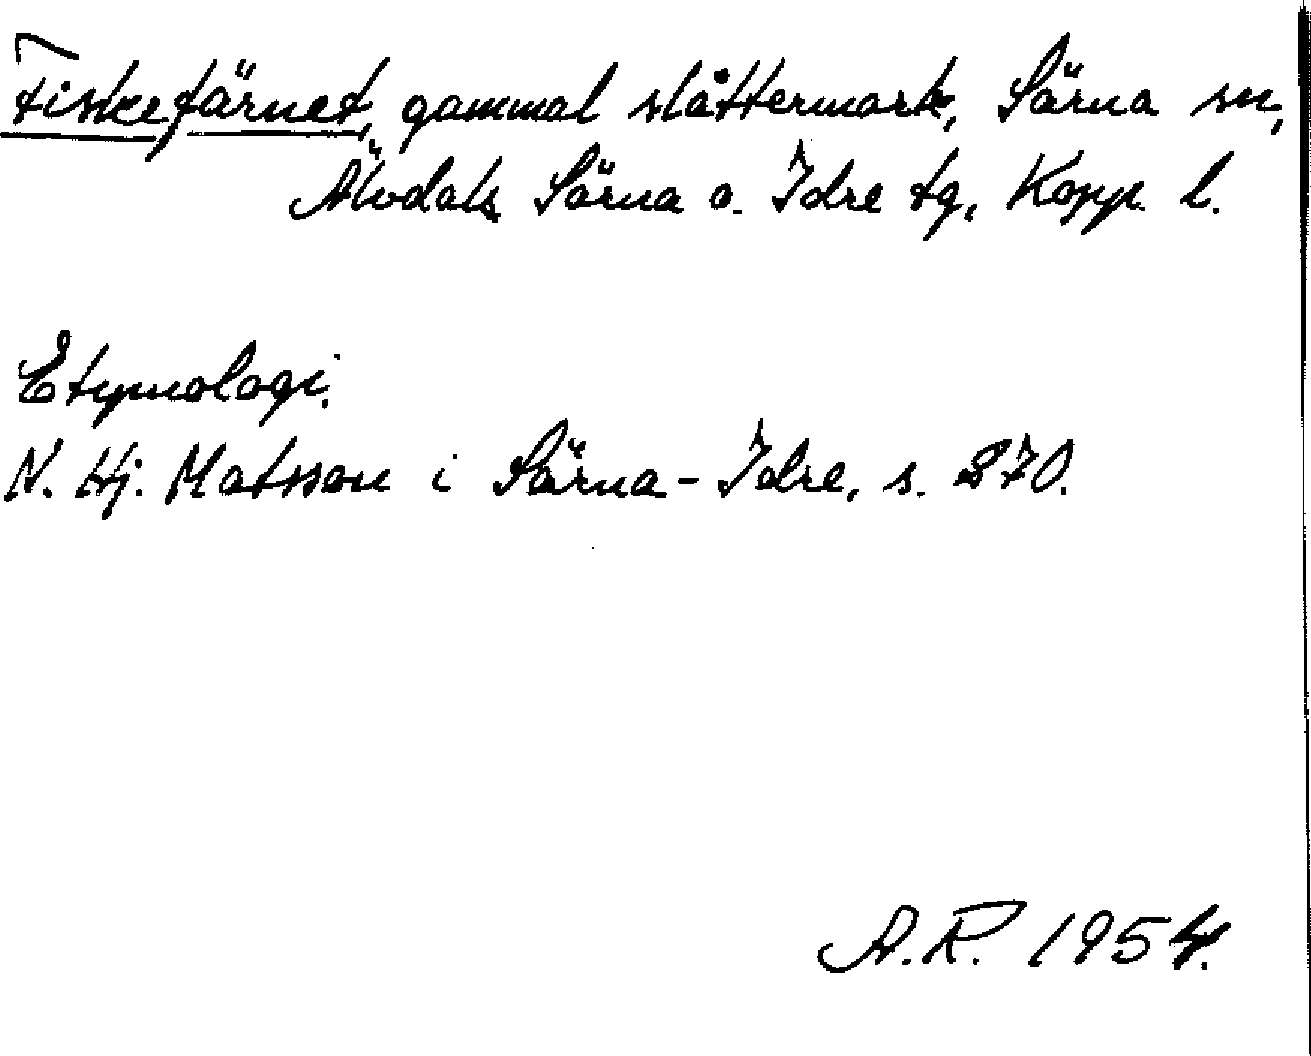 Fiskefärnet, gammal slåttermark, Särna sn,
Älvdals Särna o. Idre tg, Kopp. l.
Etymologi.
N. Hj. Matsson i Särna-Idre, s. 270.
A.R. 1954.